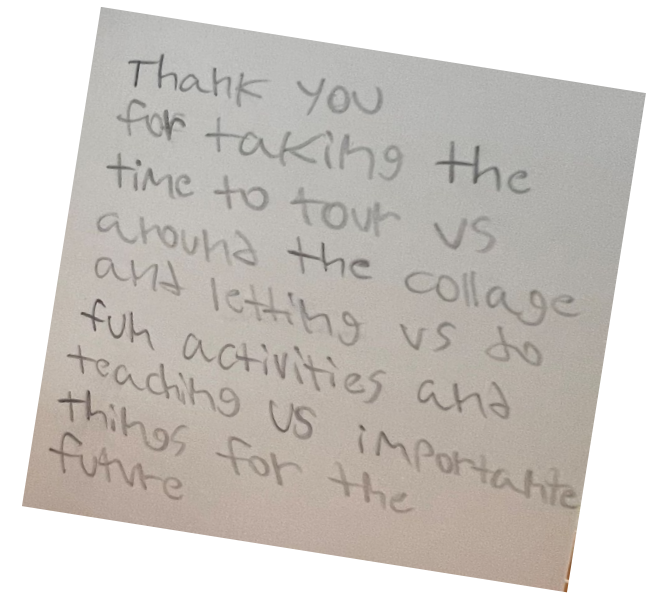 Thank you
for taking the
time to tour us
around the collage
and letting us do
fun activities and
teaching us importante
things for the
future